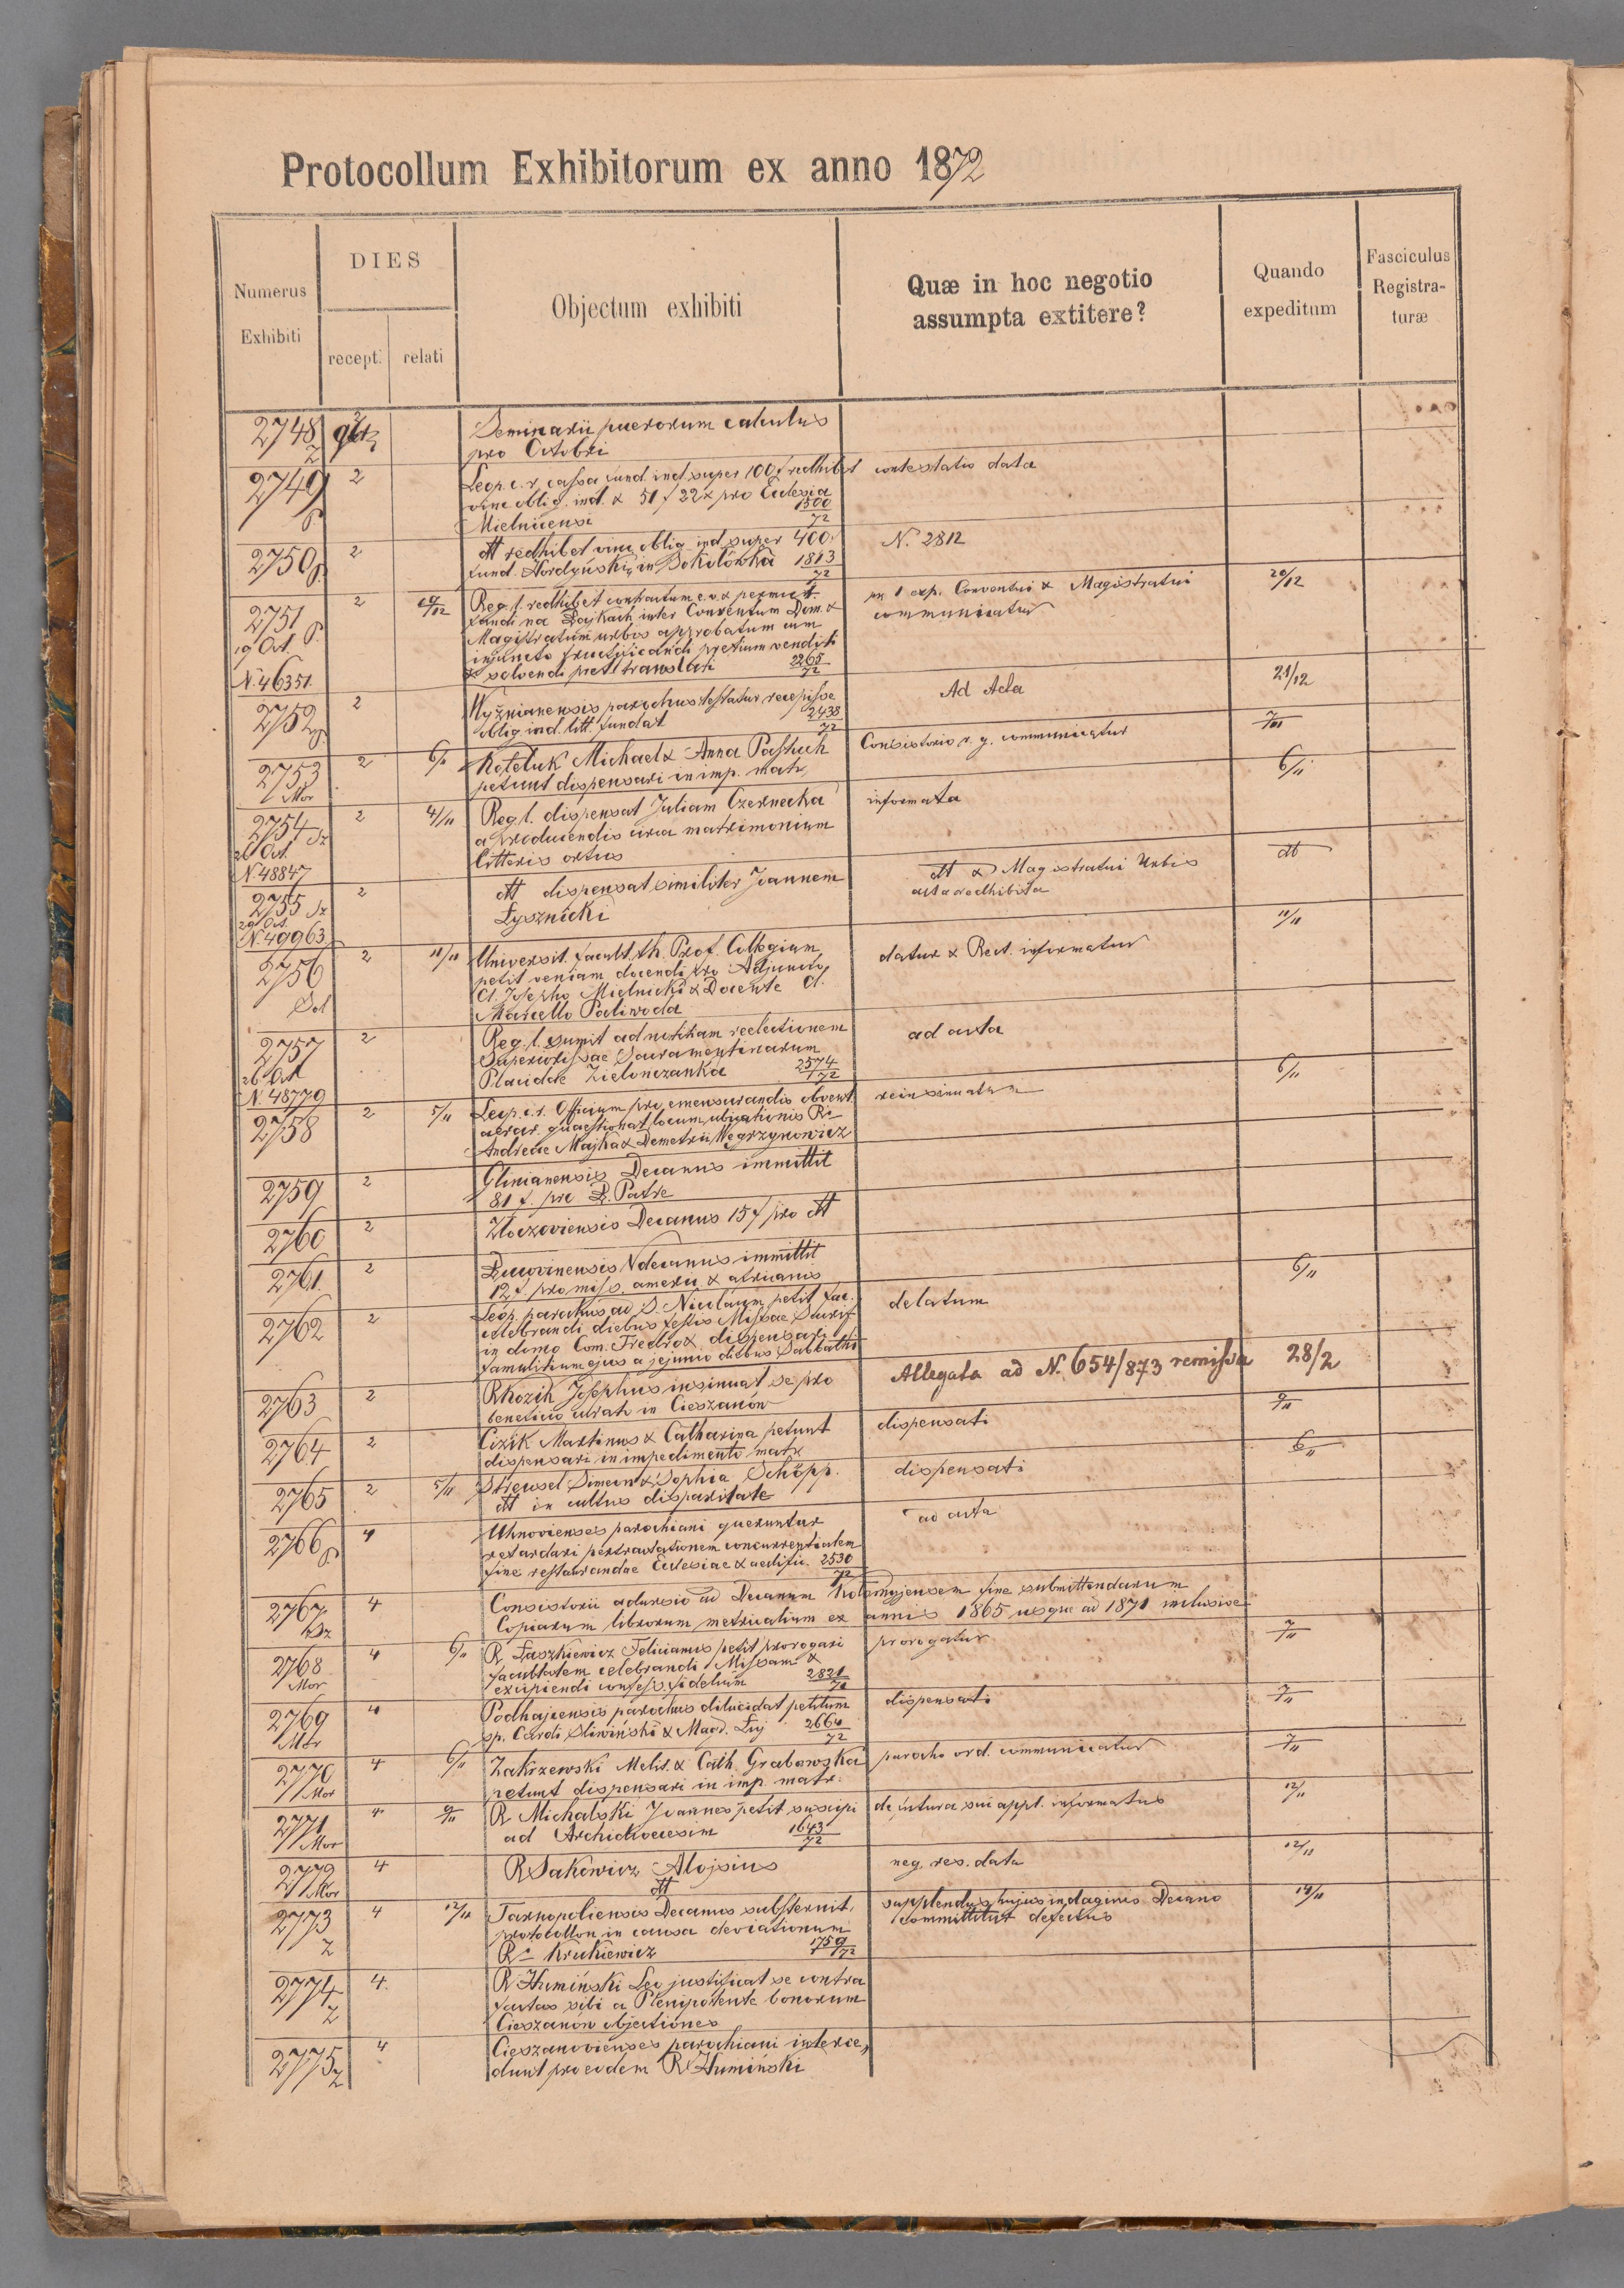 Protocollum Exhibitorum ex anno 1872
Numerus
Exhibiti
DIES
recept.
relati
Objectum exhibiti
Quæ in hoc negotio
assumpta extitere?
Quando
expeditum
Fasciculus
Registra-
turæ
2748 2 Seminarii puerorum calculus
pro Octobri
2749 2 Leop. c. r. cassa fund. ind. super 100 f redhibet contestatio data
vinc oblig. ind. & 51 f 22 x pro Ecclesia
Mielnicensi 1500/72
2750 2 dtt redhibet vinc oblig ind super 400. N. 2812
fund. Hordyński in Sokołówka 1813/72
2751 2 29/12 Reg. l. redhibet contractum e. v. & permut. 1 exp. Conventui & Magistratui 20/12
19 Oct. P. fundi na Bajkach inter Conventum Dom. & communicatur
Magistratum urbis approbatum cum
injuncto fructificandi pretium venditi
N. 46351 & solvendi pret translati 2265/72
2752 2 Wyżnianensis parochus testatur recepisse Ad Acta 21/12
oblig ind. litt. fundat 2438/72
2753 2 Koteluk Michael & Anna Pastuch Consistorio r. g. communicatur 7/11
Mor petunt dispensari in imp. matr.
2754 Sz 2 4/11 Reg. l. dispensat Juliam Czernecka informata 6/11
26 Oct. a producendis circa matrimonium
N. 48847 litteris ortus
2755 Sz 2 dtt dispensat similiter Joannem dtt & Magistratui Urbis dtt
29 Oct. Łysznicki acta redhibita
N. 49963
2756 2 11/11 Universit. facult. th. Prof. Collegium datur & Rect. informatur 11/11
petit veniam docendi pro Adjuncto
Cl. Josepho Mielnicki & Docente Cl.
Marcello Paliwoda
2757 2 Reg. l. sumit ad notitiam reelectionem ad acta
26 Oct Superiorissae Sacramentinarum
N. 48779 Placidae Zielonczanka 2574/72
2758 2 5/11 Leop. c. r. Officium pro emensurandis obvent. reinsinuatum 6/11
aerar. quaestionat locum ubicationis Rr
Andreae Majka & Demetrii Węgrzynowicz
2759 2 Glinianensis Decanus immittit
81 f. pro S. Patre
2760 2 Złoczoviensis Decanus 15 f pro dtt
2761. 2 Vdecanus immittit
12 f. pro miss. americ. & africanis
2762 2 Leop. parochus ad S. Nicolaum petit fac. delatum 6/11
celebrandi diebus festis Missae Sacrif.
in domo Com. Fredro & dispensari
famulitium ejus a jejunio diebus Sabbathi
2763 2 R Kozik Josephus insinuat se pro Allegata ad N. 654/873 remissa 28/2
beneficio curato in Cieszanów
2764 2 Cizik Martinus & Catharina petunt dispensati 9/11
dispensari in impedimento matr
2765 2 5/11 Strewsel Simeon & Sophia Schöpp. dispensati 6/11
dtt in cultus disparitate
2766 4 Uhnovienses parochiani queruntur ad acta
retardari pertractationem concurrentialem
fine restaurandae Ecclesiae & aedific. 2530/72
2767 4 Consistorii adursio ad Decanum Kołomyjensem fine submittendarum
Copiarum librorum metricalium ex annis 1865 usque ad 1871 inclusive
2768 4 6/11 R. Łaszkiewicz Felicianus petit prorogari prorogatur 7/11
Mor facultatem celebrandi Missam &
excipiendi confess. fidelium 2821/72
2769 4 Podhajcensis parochus dilucidat petitum dispensati 7/11
Mor sp. Caroli Śliwiński & Magd. Łuj 2664/72
2770 4 6/11 Zakrzewski Melit. & Cath. Grabowska parocho ord. communicatur 7/11
Mor petunt dispensari in imp. matr.
2771 4 9/11 R Michalski Joannes petit suscipi de futura sui appl. informatus 12/11
Mor ad Archidioecesim 1643/72
2772 4 R Sakowicz Alojsius neg. res. data 12/11
Mor dtt
2773 4 12/11 Tarnopoliensis Decanus substernit supplendus hujus indaginis Decano 14/11
Z protocollon in causa deviationum committitur defectus
Rr Krukiewicz 1759/72
2774 4. R Humiński Leo justificat se contra
Z factas sibi a Plenipotente bonorum
Cieszanów objectiones
2775 4 Cieszanovienses parochiani interce-
Z dunt pro eodem R Humiński